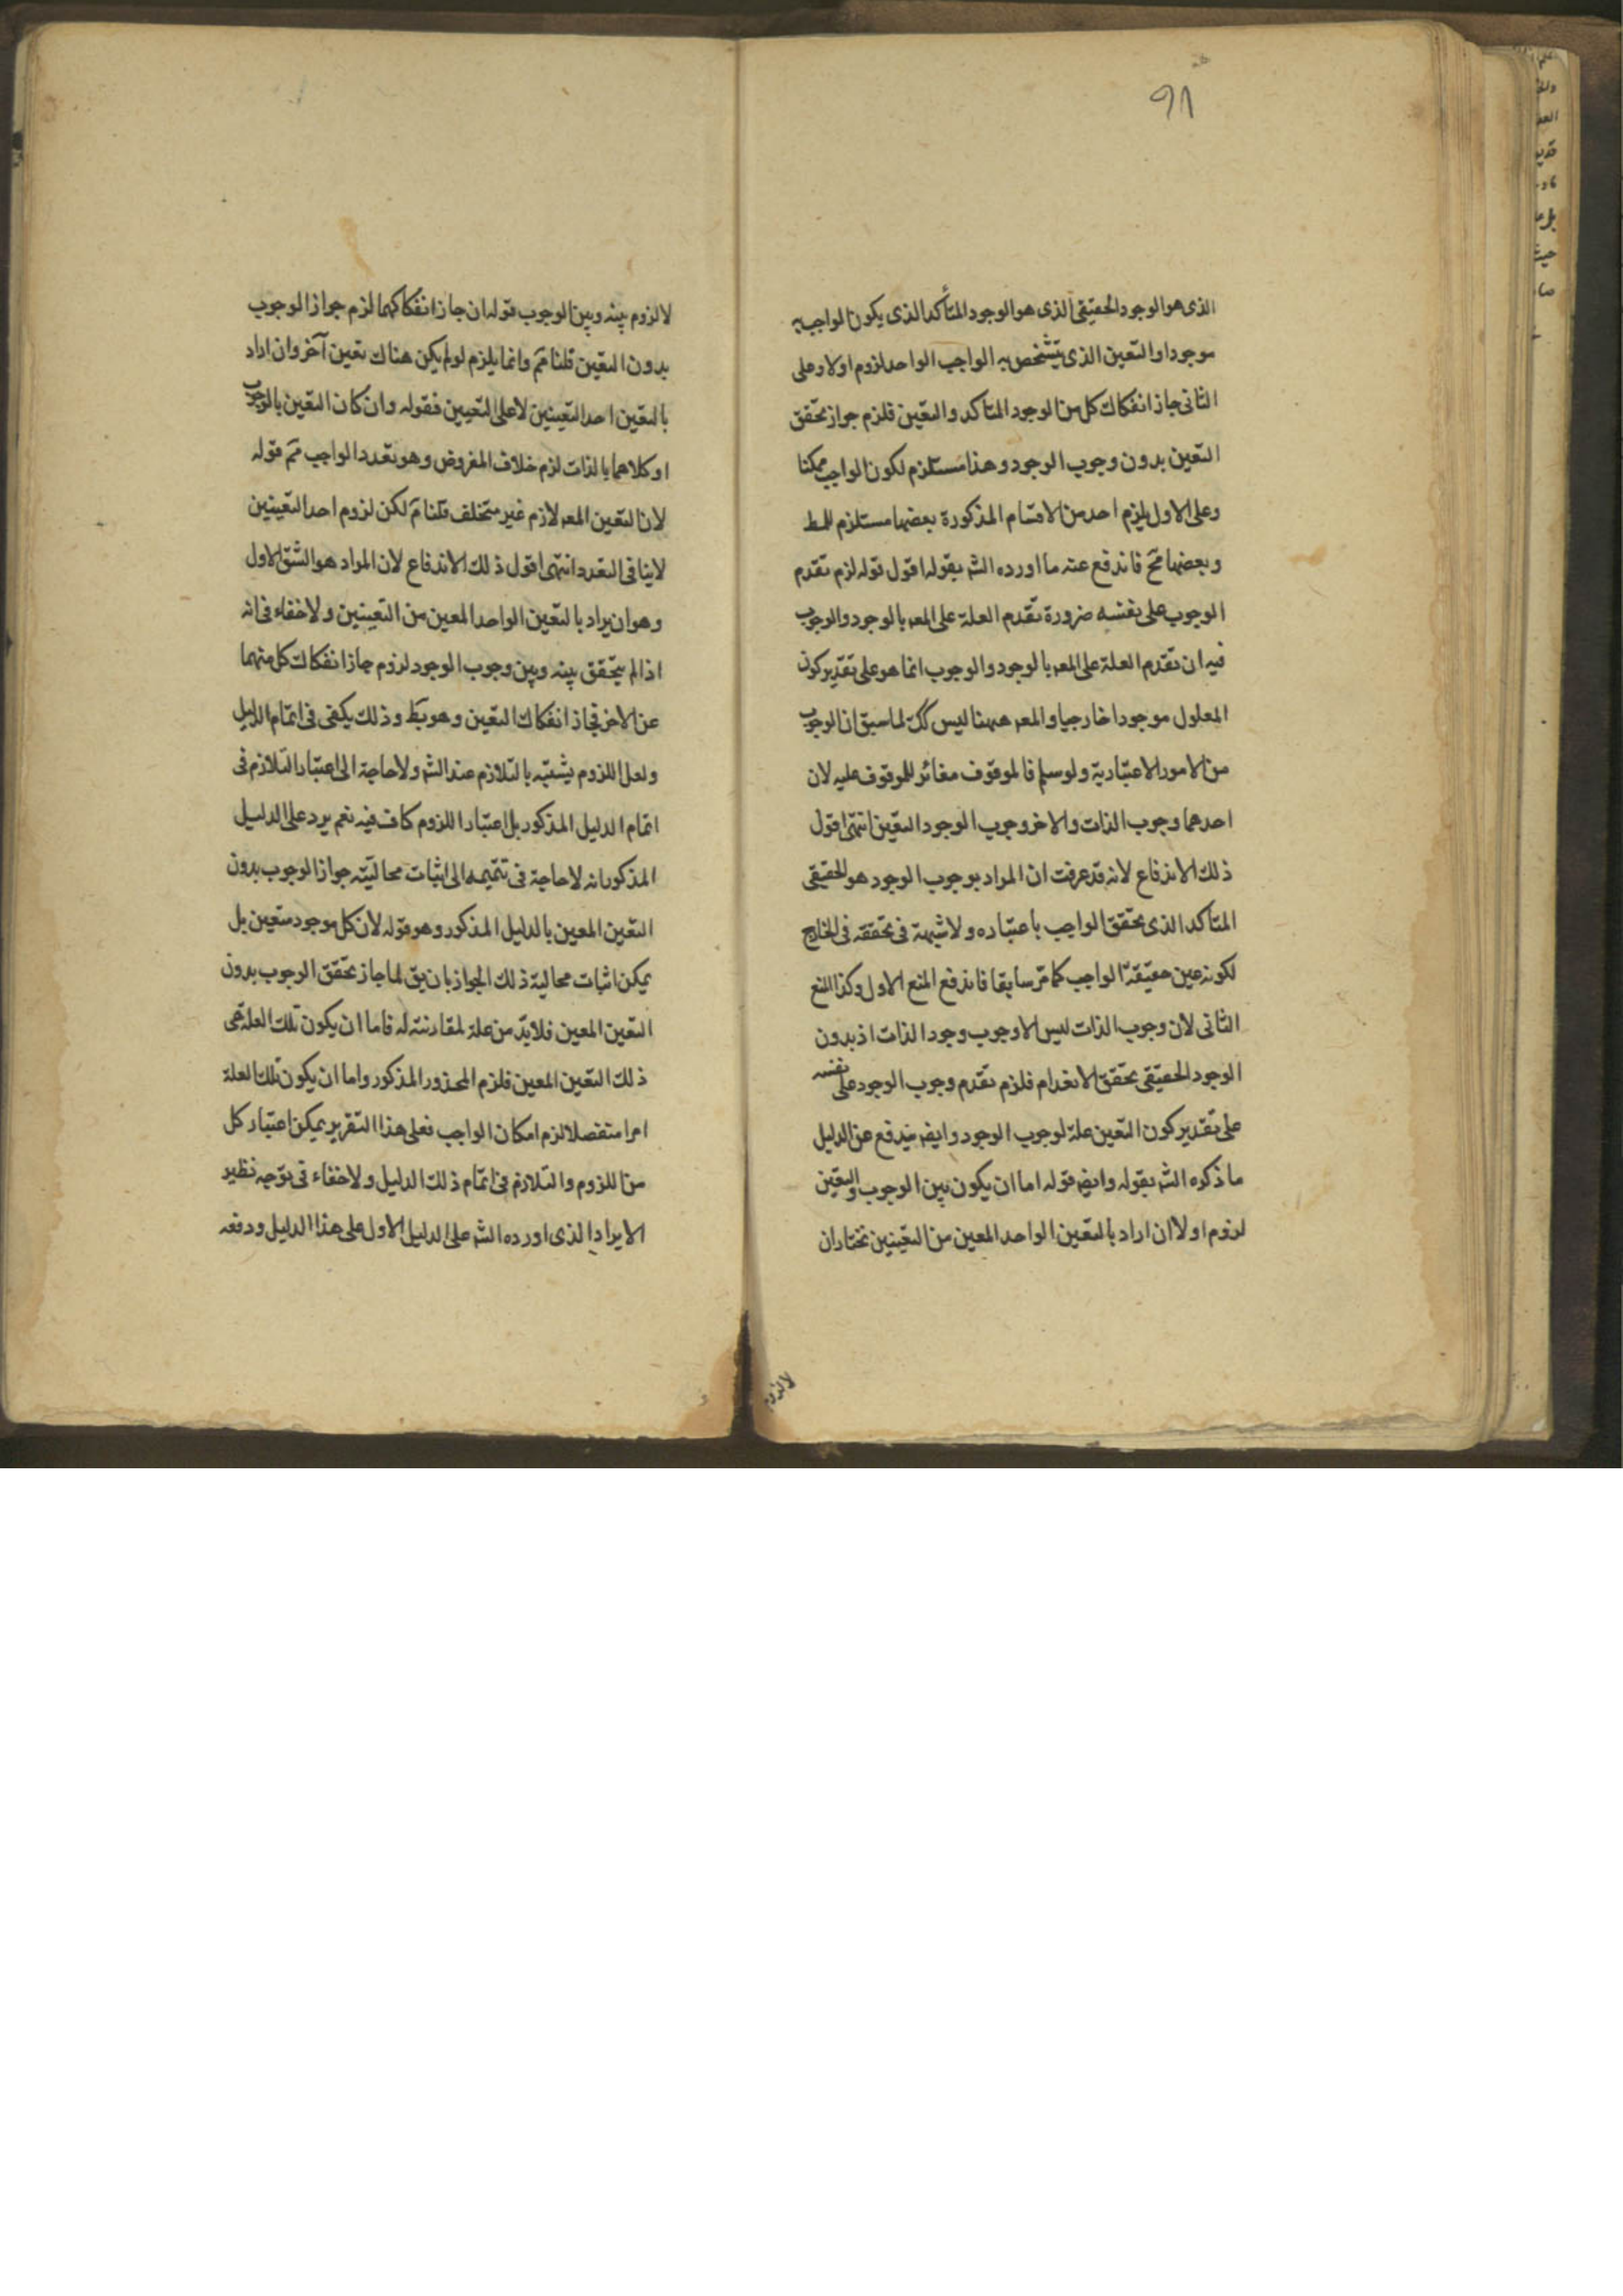 ٩١
الذى هو الوجود الحقيقى الذى هو الوجود المتأكد الذى يكون الواجب به
موجودا و التعين الذى يتشخص به الواجب الواحد لزوم اولا و على
الثانى جاز انفكاك كل من الوجود المتاكد والتعين فلزم جواز تحقق
التعين بدون وجوب الوجود وهذا مستلزم لكون الواجب ممكنا
وعلى الاول يلزم احد من الاقسام المذكورة بعضها مستلزم للمط
وبعضها مح فاندفع عنه ما اورده الشر بقوله اقول قوله لزم تقدم
الوجوب على نفسه ضرورة تقدم العلة على المعر بالوجود والوجوب
فيه ان تقدم العلة على المعر بالوجود والوجوب انما هو على تقدير كون
المعلول موجودا خارجيا والمعر ههنا ليس كك لما سبق ان الوجوب
من الامور الاعتبارية ولو سلم فالموقوف مغائر للموقوف عليه لان
احدهما وجوب الذات والاخر وجوب الوجود التعين انتهى اقول
ذلك الاندفاع لانه قد عرفت ان المراد بوجوب الوجود هو الحقيقى
المتاكد الذى تحقق الواجب باعتباره ولا شبهة فى تحققه فى الخارج
لكونه عين حقيقة الواجب كما مر سابقا فاندفع المنع الاول وكذا المنع
الثانى لان وجوب الذات ليس الا وجوب وجود الذات اذ بدون
الوجود الحقيقى تحقق الانعدام فلزم تقدم وجوب الوجود على نفسه
على تقدير كون التعين علة لوجوب الوجود وايضر يندفع عن الدليل
ما ذكره الشر بقوله وايضر قوله اما ان يكون بين الوجوب والتعين
لزوم اولا ان اراد بالتعين الواحد المعين من التعينين نختار ان
لا لزوم
لا لزوم بينه وبين الوجوب قوله ان جاز انفكاكهما لزم جواز الوجوب
بدون التعين قلنا مم وانما يلزم لو لم يكن هناك تعين آخر وان اراد
بالتعين احد التعينين لا على التعيين فقوله وان كان التعين بالوجوب
او كلاهما بالذات لزم خلاف المفروض وهو تعدد الواجب مم قوله
لان التعين المعر لازم غير متخلف قلنا مم لكن لزوم احد التعينين
لا ينافى التعدد انتهى اقول ذلك الاندفاع لان المراد هو الشق الاول
وهو ان يراد بالتعين الواحد المعين من التعينين ولا خفاء فى انه
اذا لم يتحقق بينه وبين وجوب الوجود لزوم جاز انفكاك كل منهما
عن الاخر فجاز انفكاك التعين وهو بط وذلك يكفى فى اتمام الدليل
ولعل اللزوم يشتبه بالتلازم عند الشر ولا حاجة الى اعتبار التلازم فى
اتمام الدليل المذكور بل اعتبار اللزوم كاف فيه نعم يرد على الدليل
المذكور انه لا حاجة فى تتميمه الى اثبات محالية جواز الوجوب بدون
التعين المعين بالدليل المذكور وهو قوله لان كل موجود متعين بل
يمكن اثبات محالية ذلك الجواز بان يق لما جاز تحقق الوجوب بدون
التعين المعين فلابد من علة لمقارنته له فاما ان يكون تلك العلة هى
ذلك التعين المعين فلزم المحذور المذكور واما ان يكون تلك العلة
امرا منفصلا لزم امكان الواجب فعلى هذا التقرير يمكن اعتبار كل
من اللزوم والتلازم فى اتمام ذلك الدليل ولا خفاء فى توجه نظير
الايراد الذى اورده الشر على الدليل الاول على هذا الدليل ودفعه